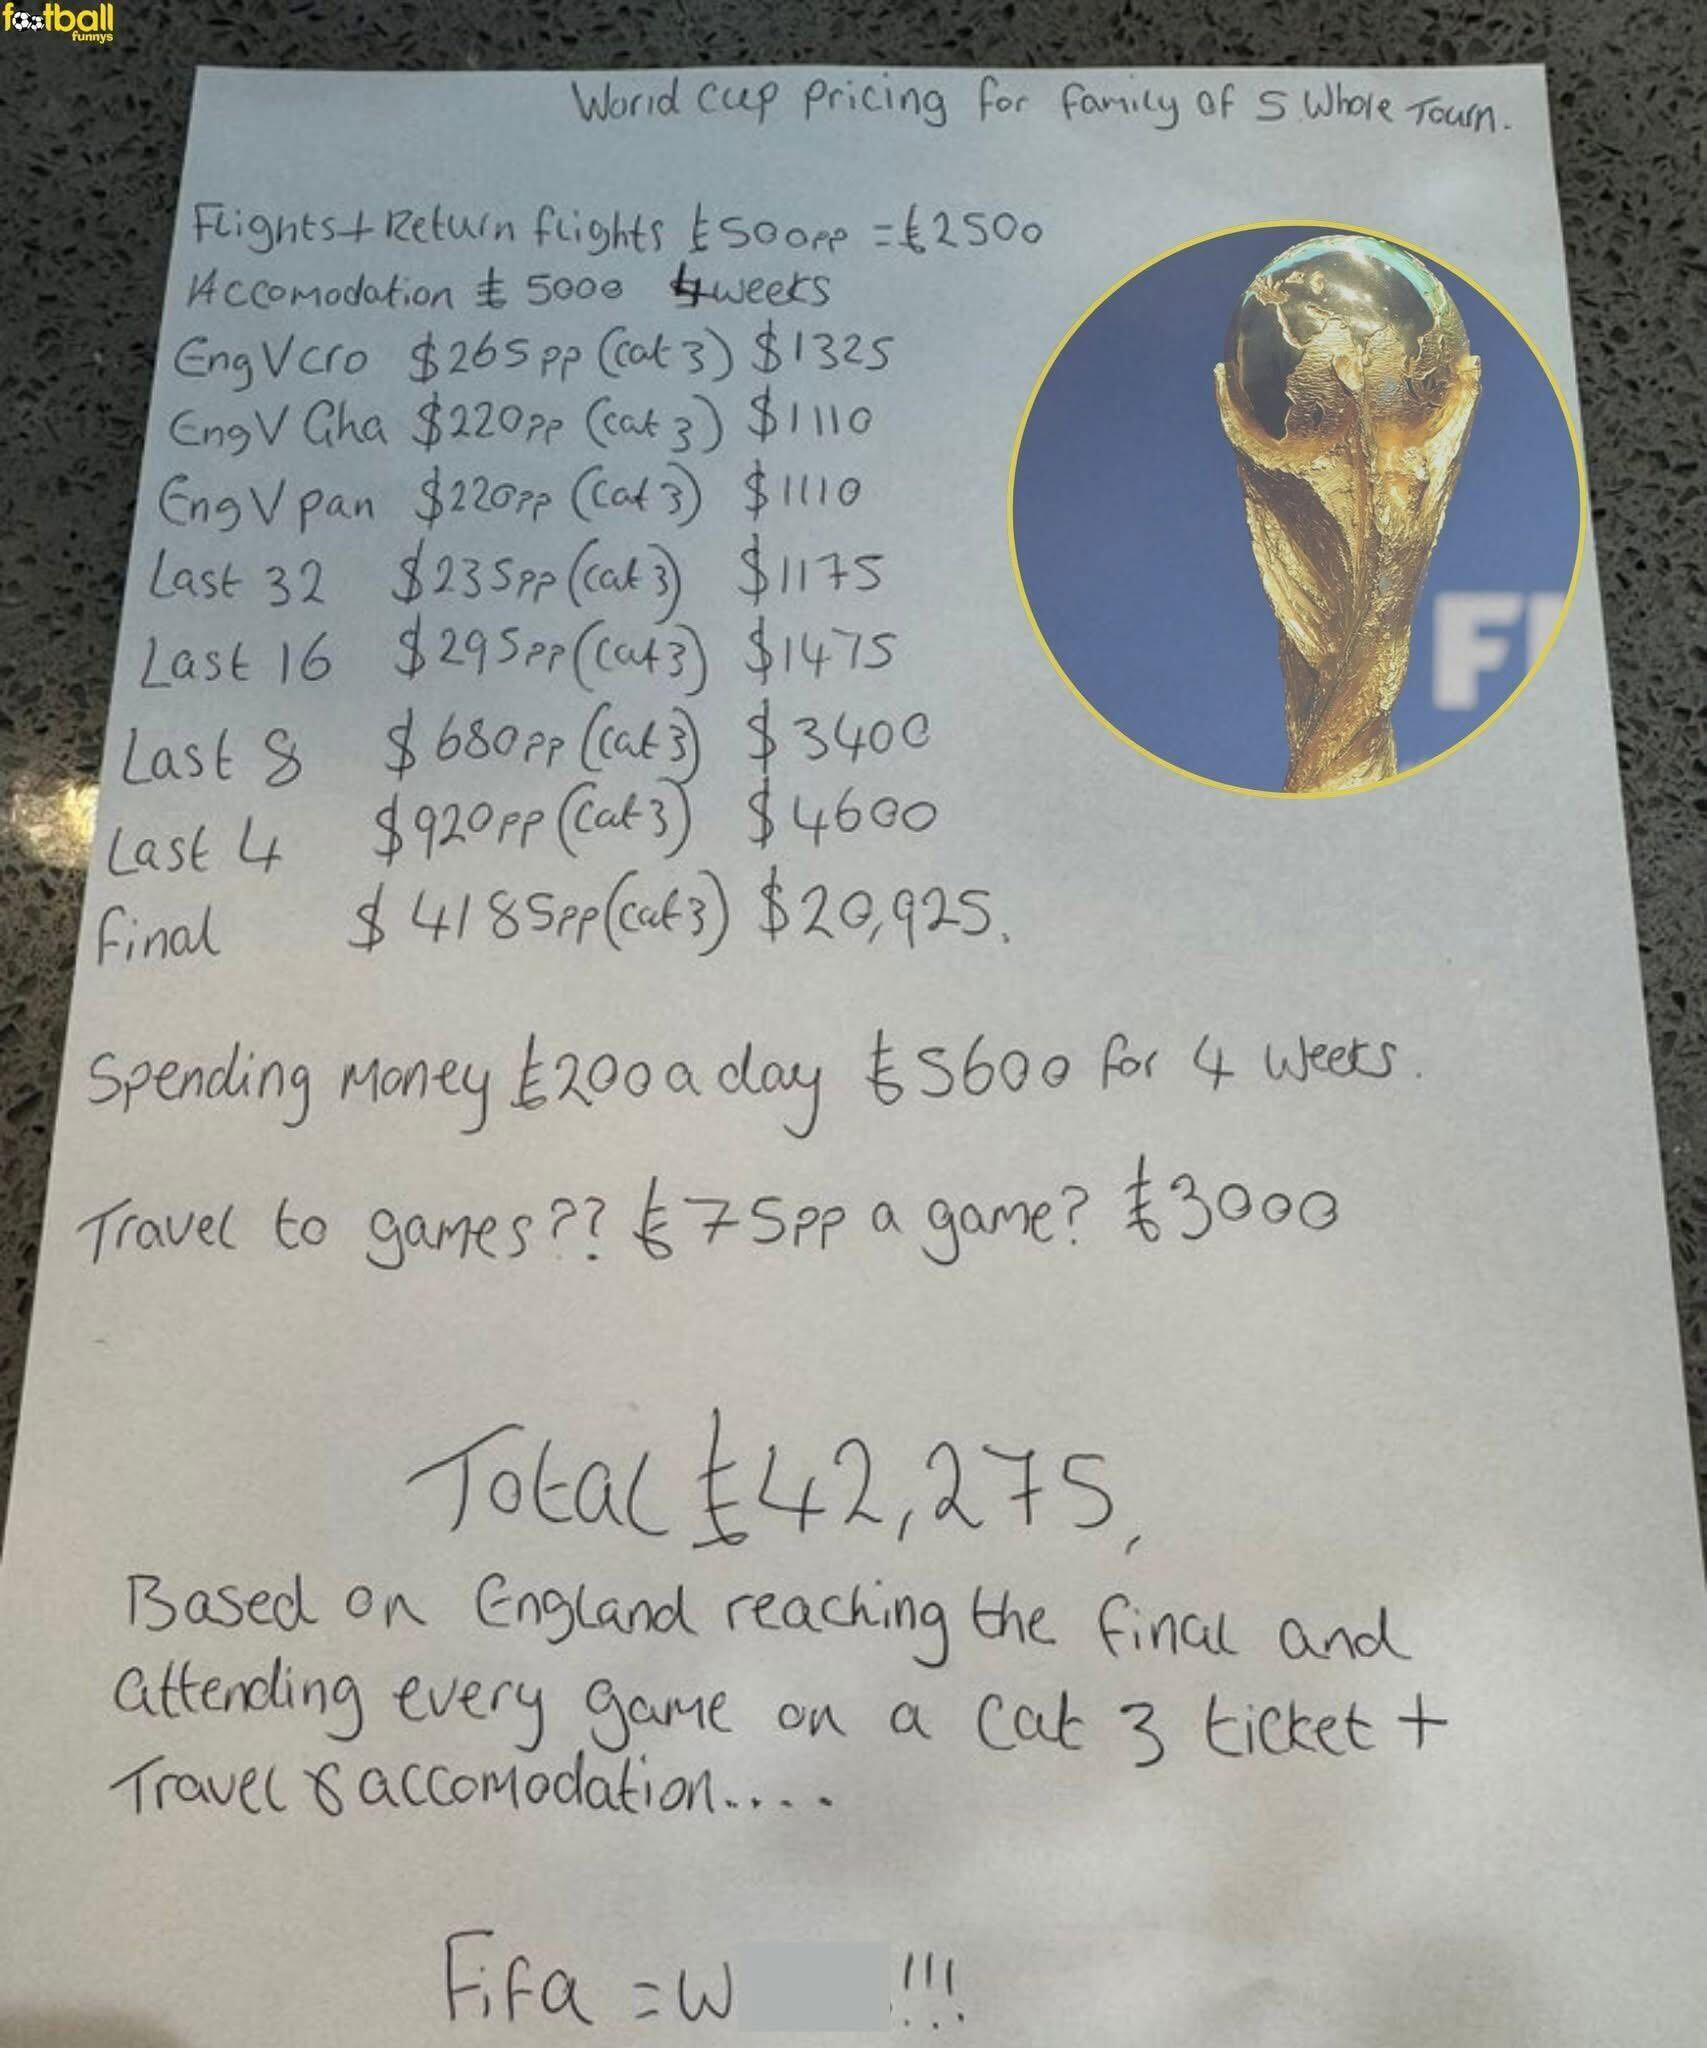 football
funnys
World Cup pricing for family of 5 Whole Tourn.
Flights + Return flights £500pp = £2500
Accomodation £5000 4 weeks
Eng V cro $265pp (cat 3) $1325
Eng V Gha $220pp (cat 3) $1110
Eng V pan $220pp (cat 3) $1110
Last 32 $235pp (cat 3) $1175
Last 16 $295pp (cat 3) $1475
Last 8 $680pp (cat 3) $3400
Last 4 $920pp (cat 3) $4600
final $4185pp (cat 3) $20,925.
Spending Money £200 a day £5600 for 4 weeks.
Travel to games?? £75pp a game? £3000
Total £42,275,
Based on England reaching the final and
attending every game on a cat 3 ticket +
Travel & accomodation....
Fifa = W !!!
FI